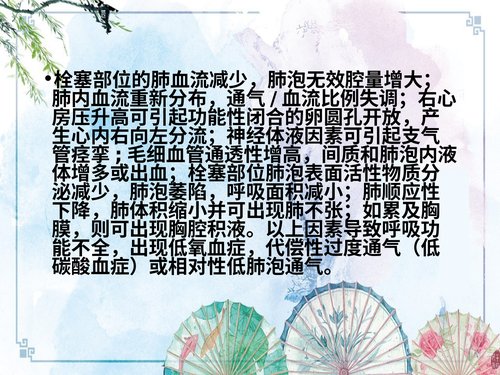 •栓塞部位的肺血流减少，肺泡无效腔量增大；
肺内血流重新分布，通气 / 血流比例失调；右心
房压升高可引起功能性闭合的卵圆孔开放，产
生心内右向左分流；神经体液因素可引起支气
管痉挛；毛细血管通透性增高，间质和肺泡内液
体增多或出血；栓塞部位肺泡表面活性物质分
泌减少，肺泡萎陷，呼吸面积减小；肺顺应性
下降，肺体积缩小并可出现肺不张；如累及胸
膜，则可出现胸腔积液。以上因素导致呼吸功
能不全，出现低氧血症，代偿性过度通气（低
碳酸血症）或相对性低肺泡通气。